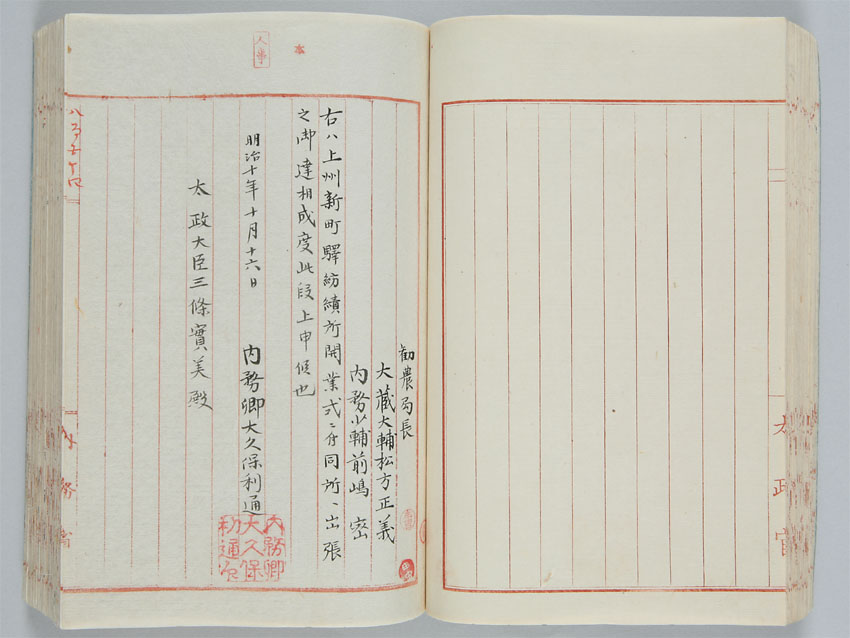 太政官
勧農局長
大藏大輔松方正義
内務少輔前嶋密
右ハ上州新町驛紡績所開業式ニ付同所ヘ出張
之御達相成度此段上申候也
明治十年十月十六日
内務卿大久保利通
内務卿
大久保
利通
太政大臣三條實美殿
人事
本
内務省